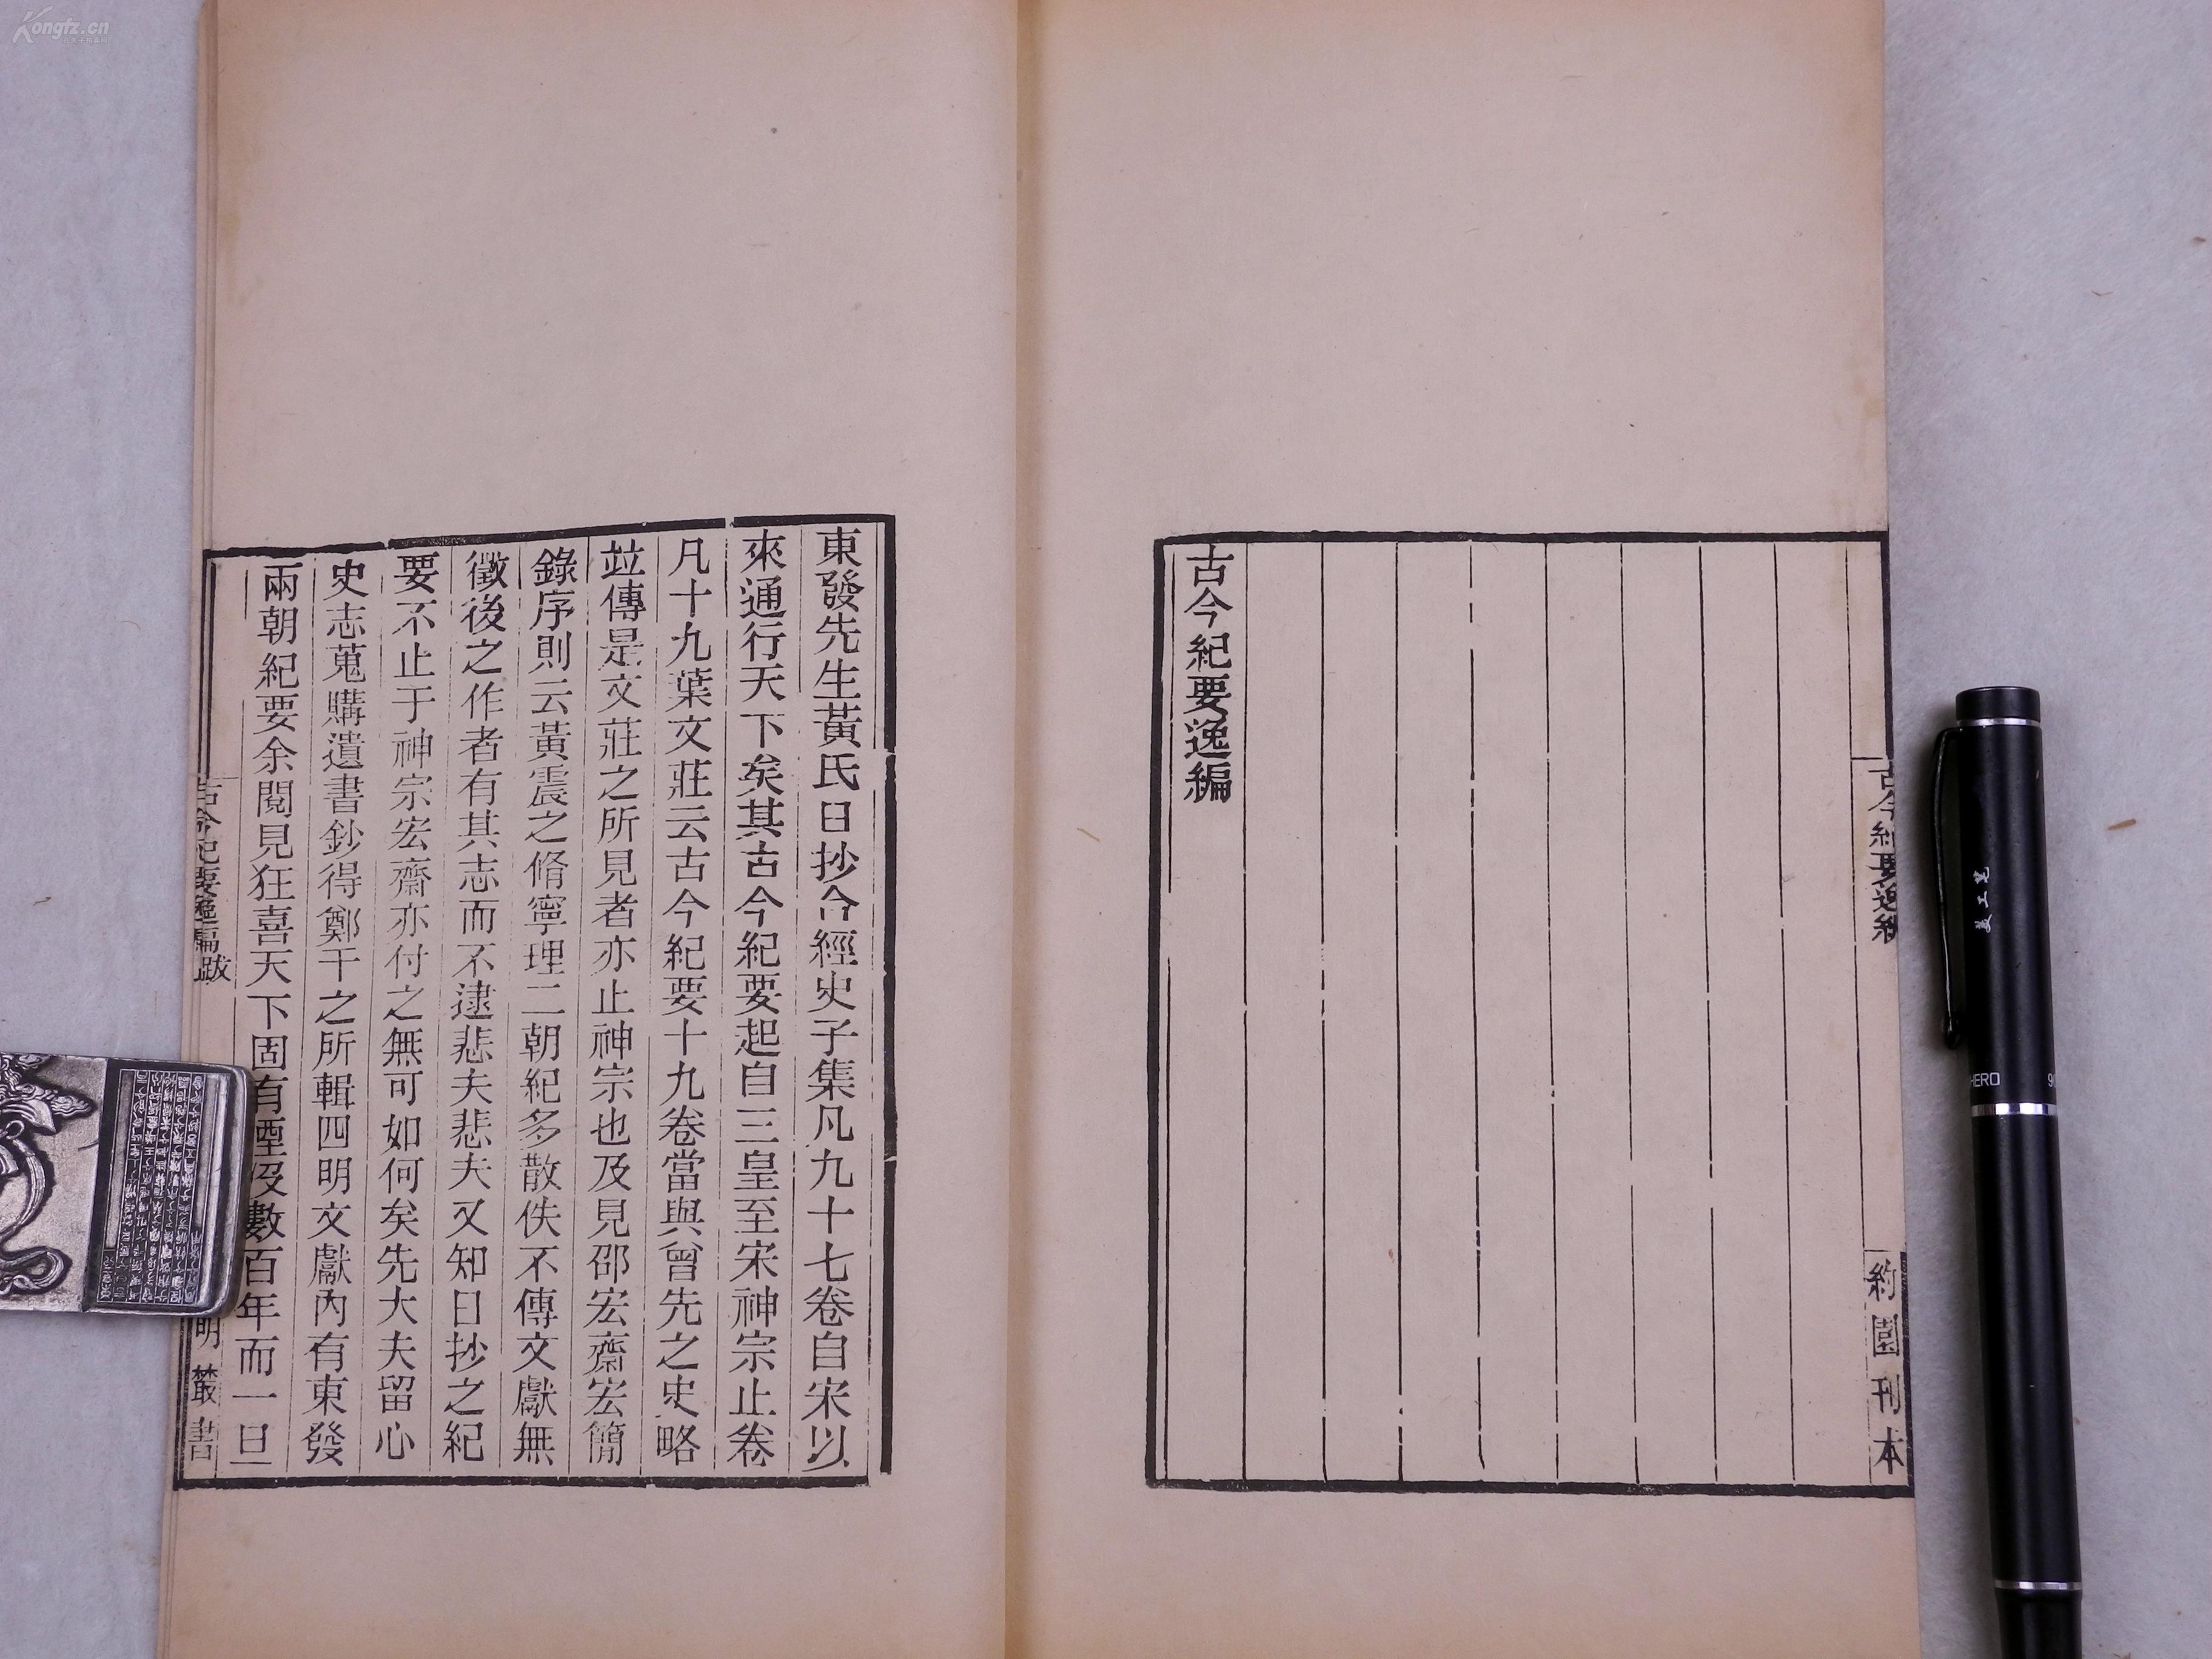 古今紀要逸編
約園刊本
東發先生黃氏日抄合經史子集凡九十七卷自宋以
來通行天下矣其古今紀要起自三皇至宋神宗止卷
凡十九葉文莊云古今紀要十九卷當與曾先之史略
竝傳是文莊之所見者亦止神宗也及見邵宏齋宏簡
錄序則云黃震之脩寧理二朝紀多散佚不傳文獻無
徵後之作者有其志而不逮悲夫悲夫又知日抄之紀
要不止于神宗宏齋亦付之無可如何矣先大夫留心
史志蒐購遺書鈔得鄭千之所輯四明文獻內有東發
兩朝紀要余閱見狂喜天下固有湮沒數百年而一旦
古今紀要逸編跋
明叢書
古今紀要逸編
HERO
Kongfz.cn